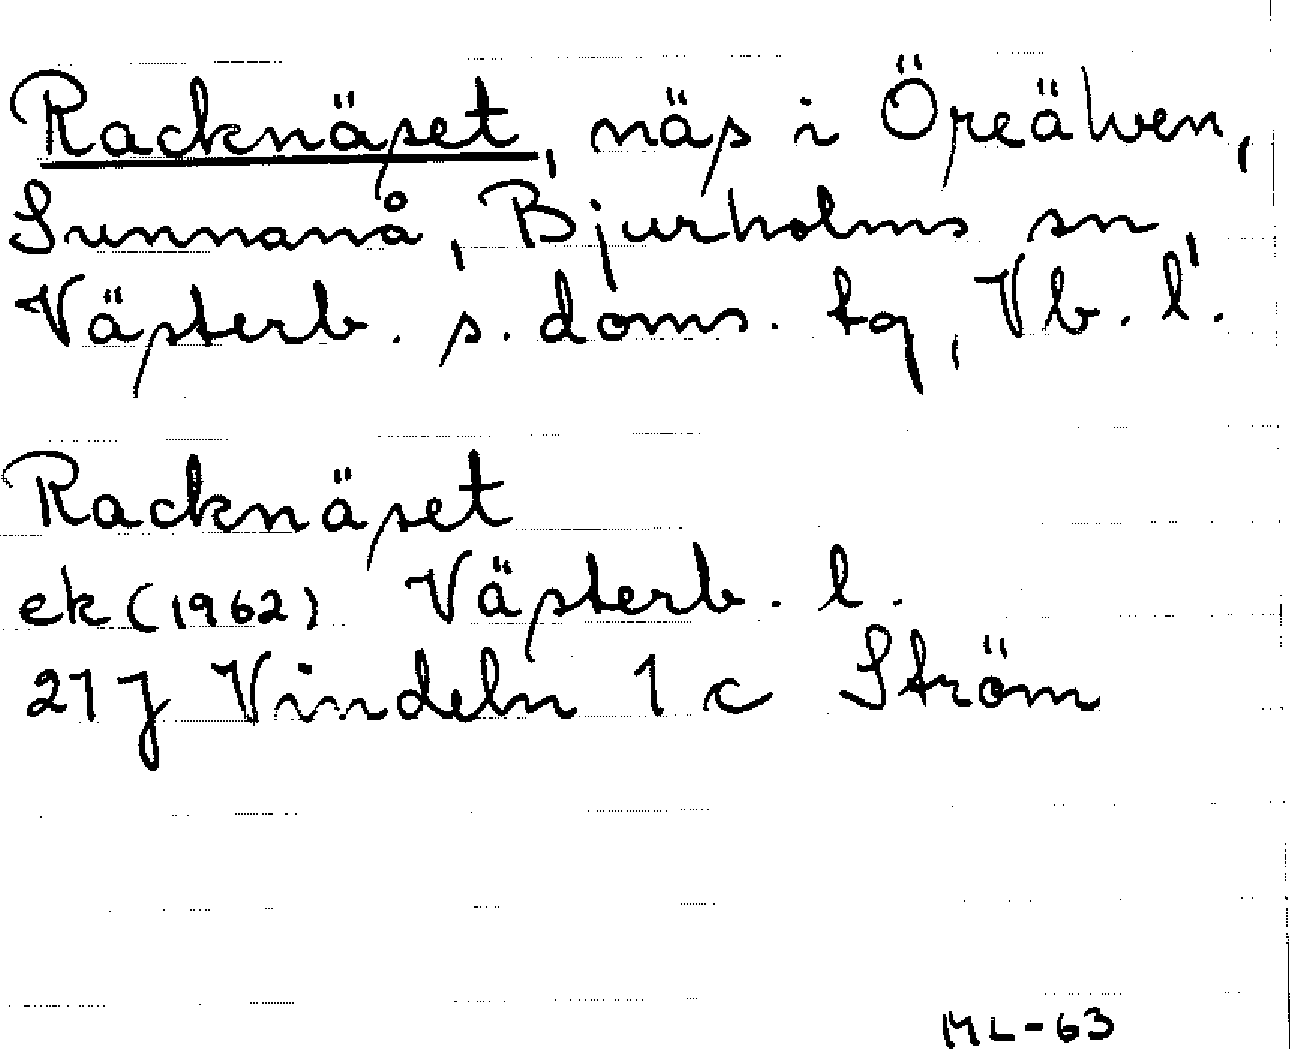 Racknäset, näs i Öreälven,
Sunnanå, Bjurholms sn,
Västerb. s. doms. tg, Vb. l.
Racknäset
ek (1962) Västerb. l.
21 J Vindeln 1 c Ström
ML-63